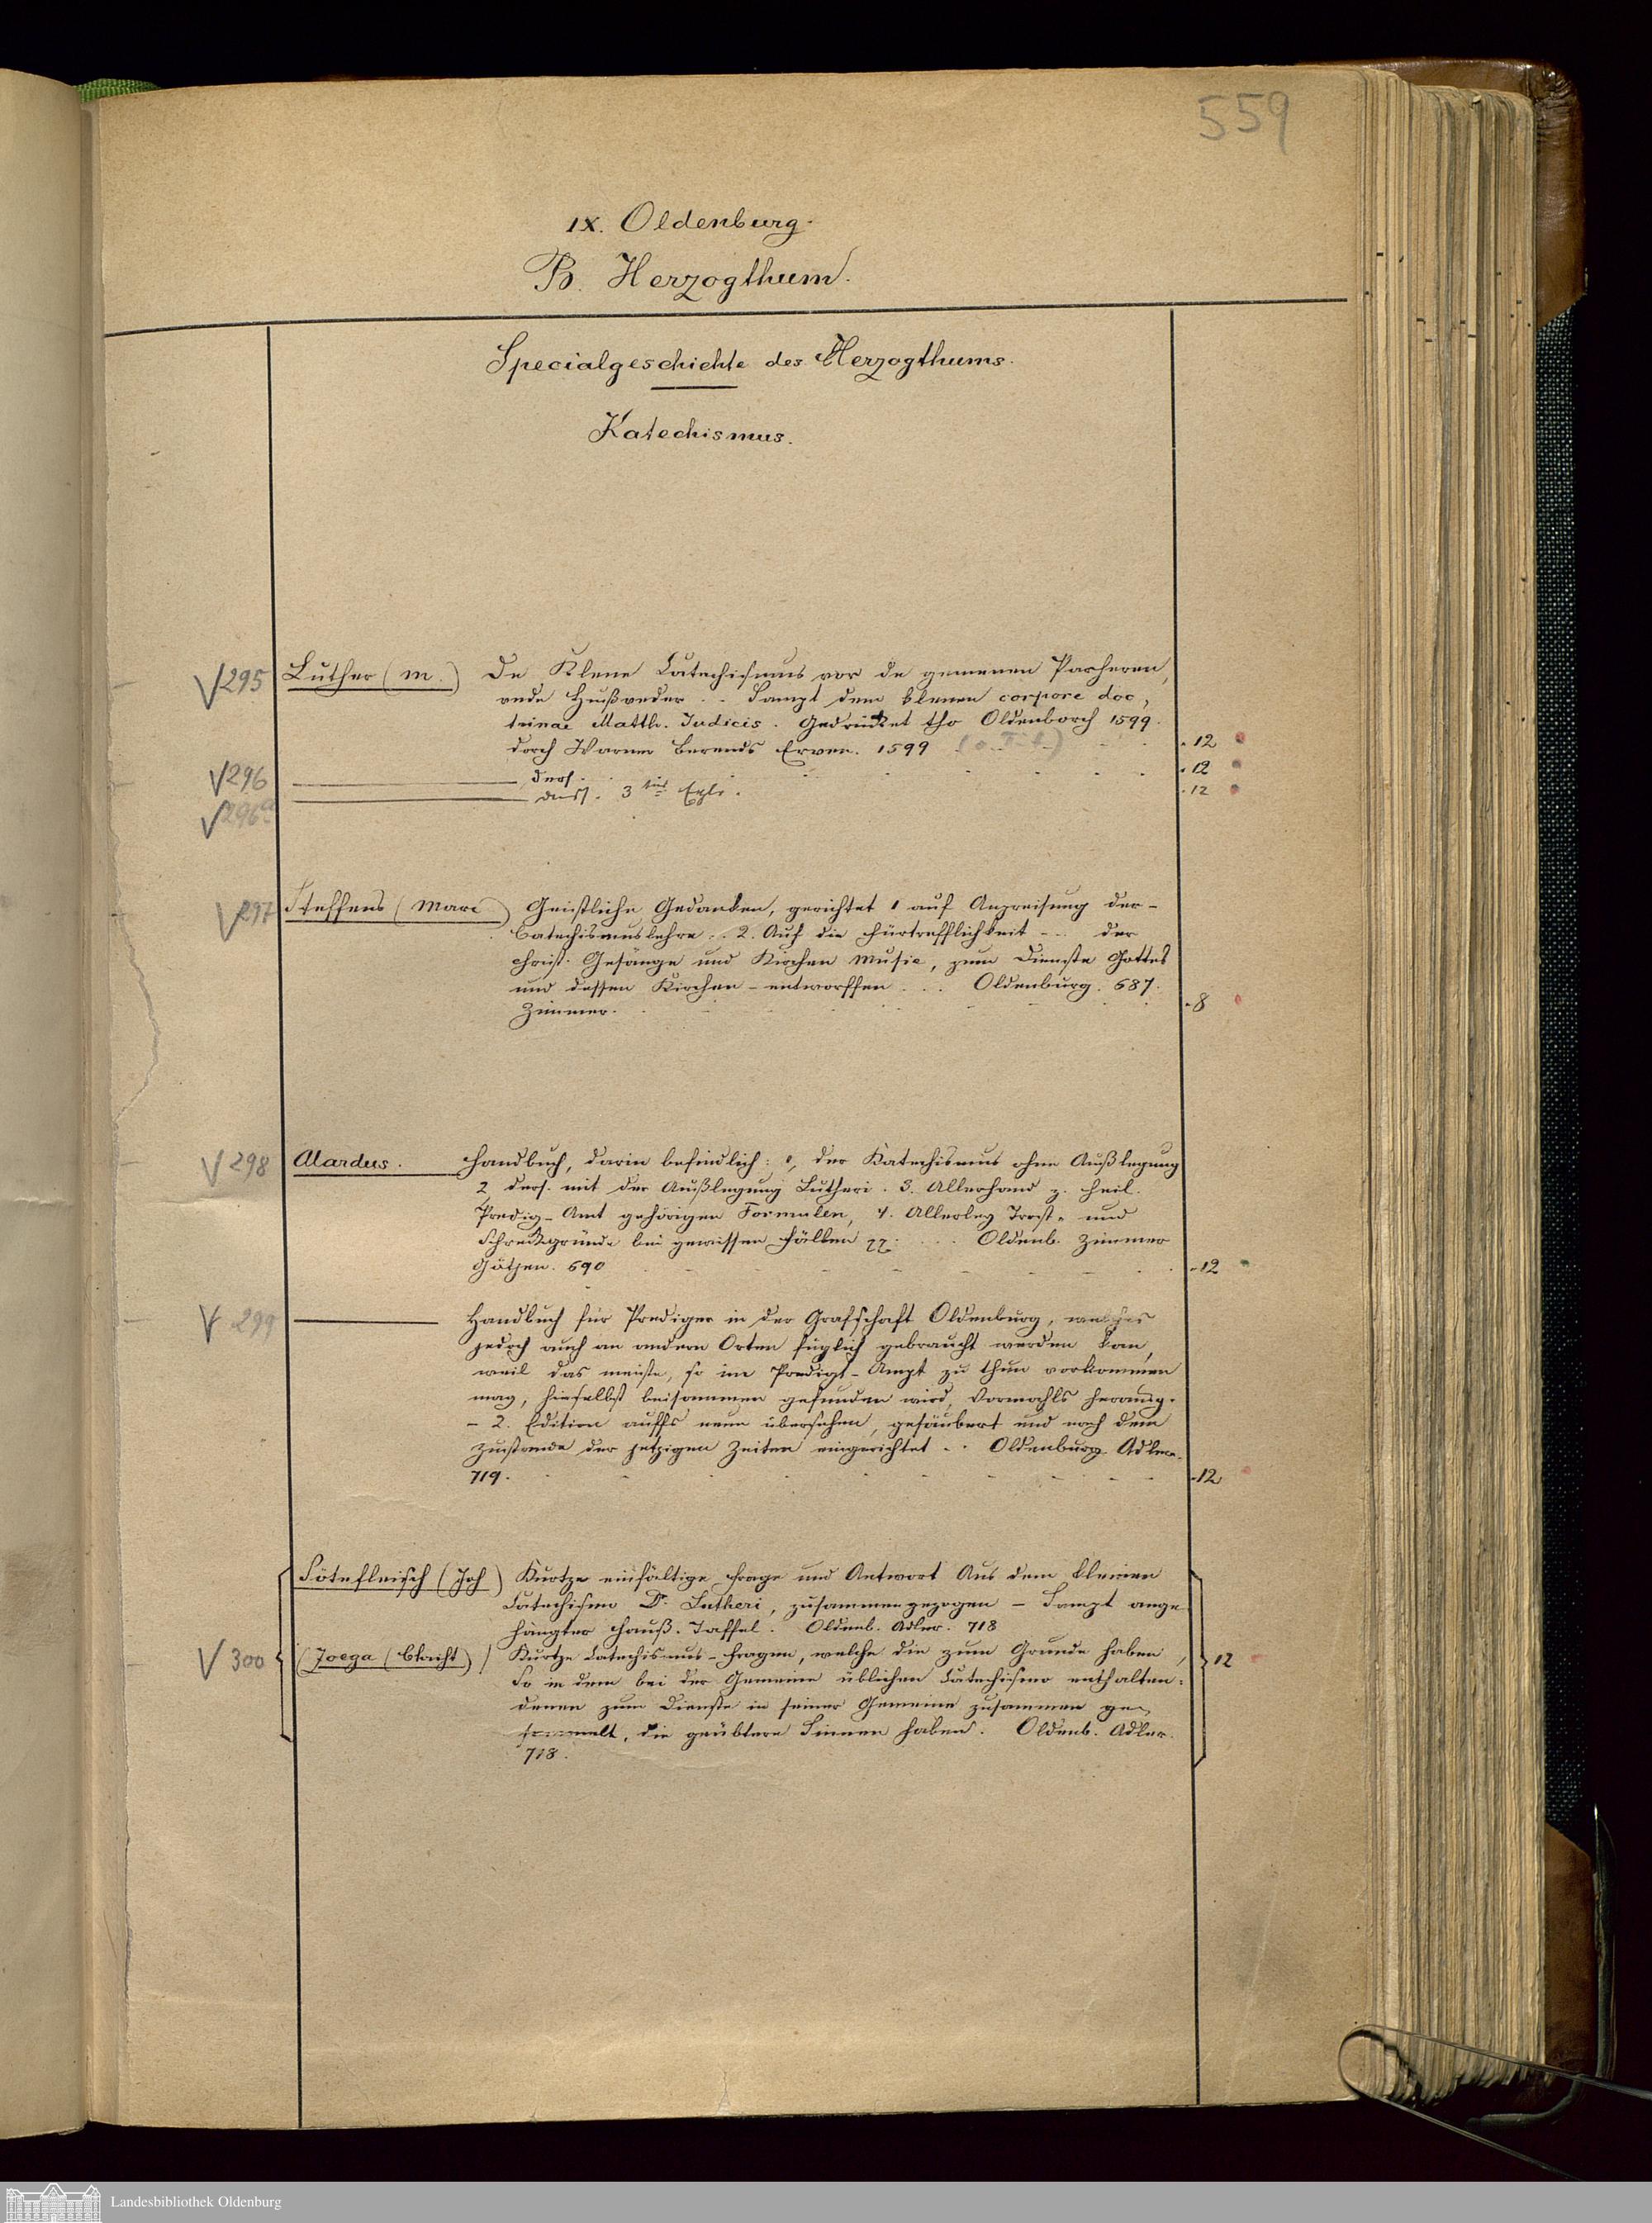 559
IX. Oldenburg.
B. Herzogthum.
Specialgeschichte des Herzogthums.
Katechismus.
V 295 Luther (M.) De Klene Catechismus vor de gemenen Parheren,
unde Hußveder . . Sampt dem klenen corpore doc,
trinae Matth. Judicis. Gedrücket tho Oldenborch 1599.
dorch Warner Berends Erven. 1599 - 12
V 296 ders. - 12
V 296a dass. 3tes Expl. - 12
V 297 Steffens (Marc) Geistliche Gedanken, gerichtet 1 auf Anpreisung der -
Catechismuslehre . . 2. Auf die Fürtrefflichkeit - - der
christ. Gesänge und Kirchen Music, zum Dienste Gottes
und dessen Kirchen - entworffen . . . Oldenburg. 687.
Zimmer. - 8
V 298 Alardus. Handbuch, darin befindlich: 1, der Katechismus ohne Außlegung
2, ders. mit der Außlegung Lutheri. 3. Allerhand z. heil.
Predig-Amt gehörigen Formulen, 4. Allerley Trost- und
Schreckgründe bei gewissen Fällen . . . Oldenb. Zimmer
Götzen. 690 - 12
V 299 Handbuch für Prediger in der Grafschaft Oldenburg, welches
jedoch auch an andern Orten füglich gebraucht werden kan,
weil das meiste, so im Predigt-Ampt zu thun vorkommen
mag, hieselbst beisammen gefunden wird, Vormahls herausg.
- 2. Edition auffs neue übersehen, gesäubert und nach dem
Zustande der jetzigen Zeiten eingerichtet . . Oldenburg. Adler.
719. - 12
Sötefleisch (Joh) Kurtze einfältige Frage und Antwort Aus dem kleinen
Catechismo Dr. Lutheri, zusammengezogen - Sampt ange
hängter Hauß-Taffel. Oldenb. Adler. 718
V 300 Kurtze Catechismus-Fragen, welche die zum Grunde haben, 12
So in dem bei der Gemeine üblichen Catechismo enthalten:
denen zum Dienste in seiner Gemeine zusammen ge,
sammelt, die geübtere Sinnen haben. Oldenb. Adler.
718.
Landesbibliothek Oldenburg